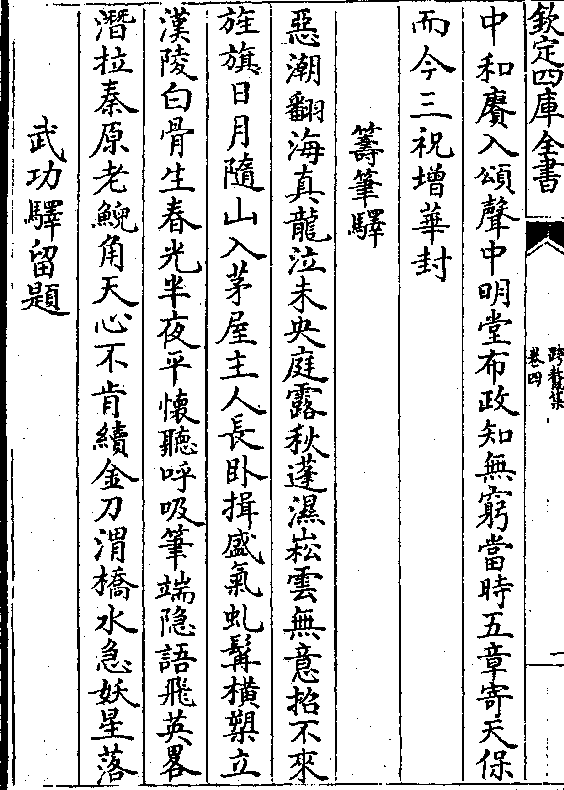 欽定四庫全書
跨鼇集
卷四
一
中和賡入頌聲中明堂布政知無窮當時五章寄天保
而今三祝增華封
籌筆驛
惡潮翻海真龍泣未央庭露秋蓬濕崧雲無意招不來
旌旗日月隨山入茅屋主人長卧揖盛氣虬髯橫槊立
漢陵白骨生春光半夜平懷聽呼吸筆端隐語飛英畧
潛拉秦原老鯢角天心不肯續金刀渭橋水急妖星落
武功驛留題